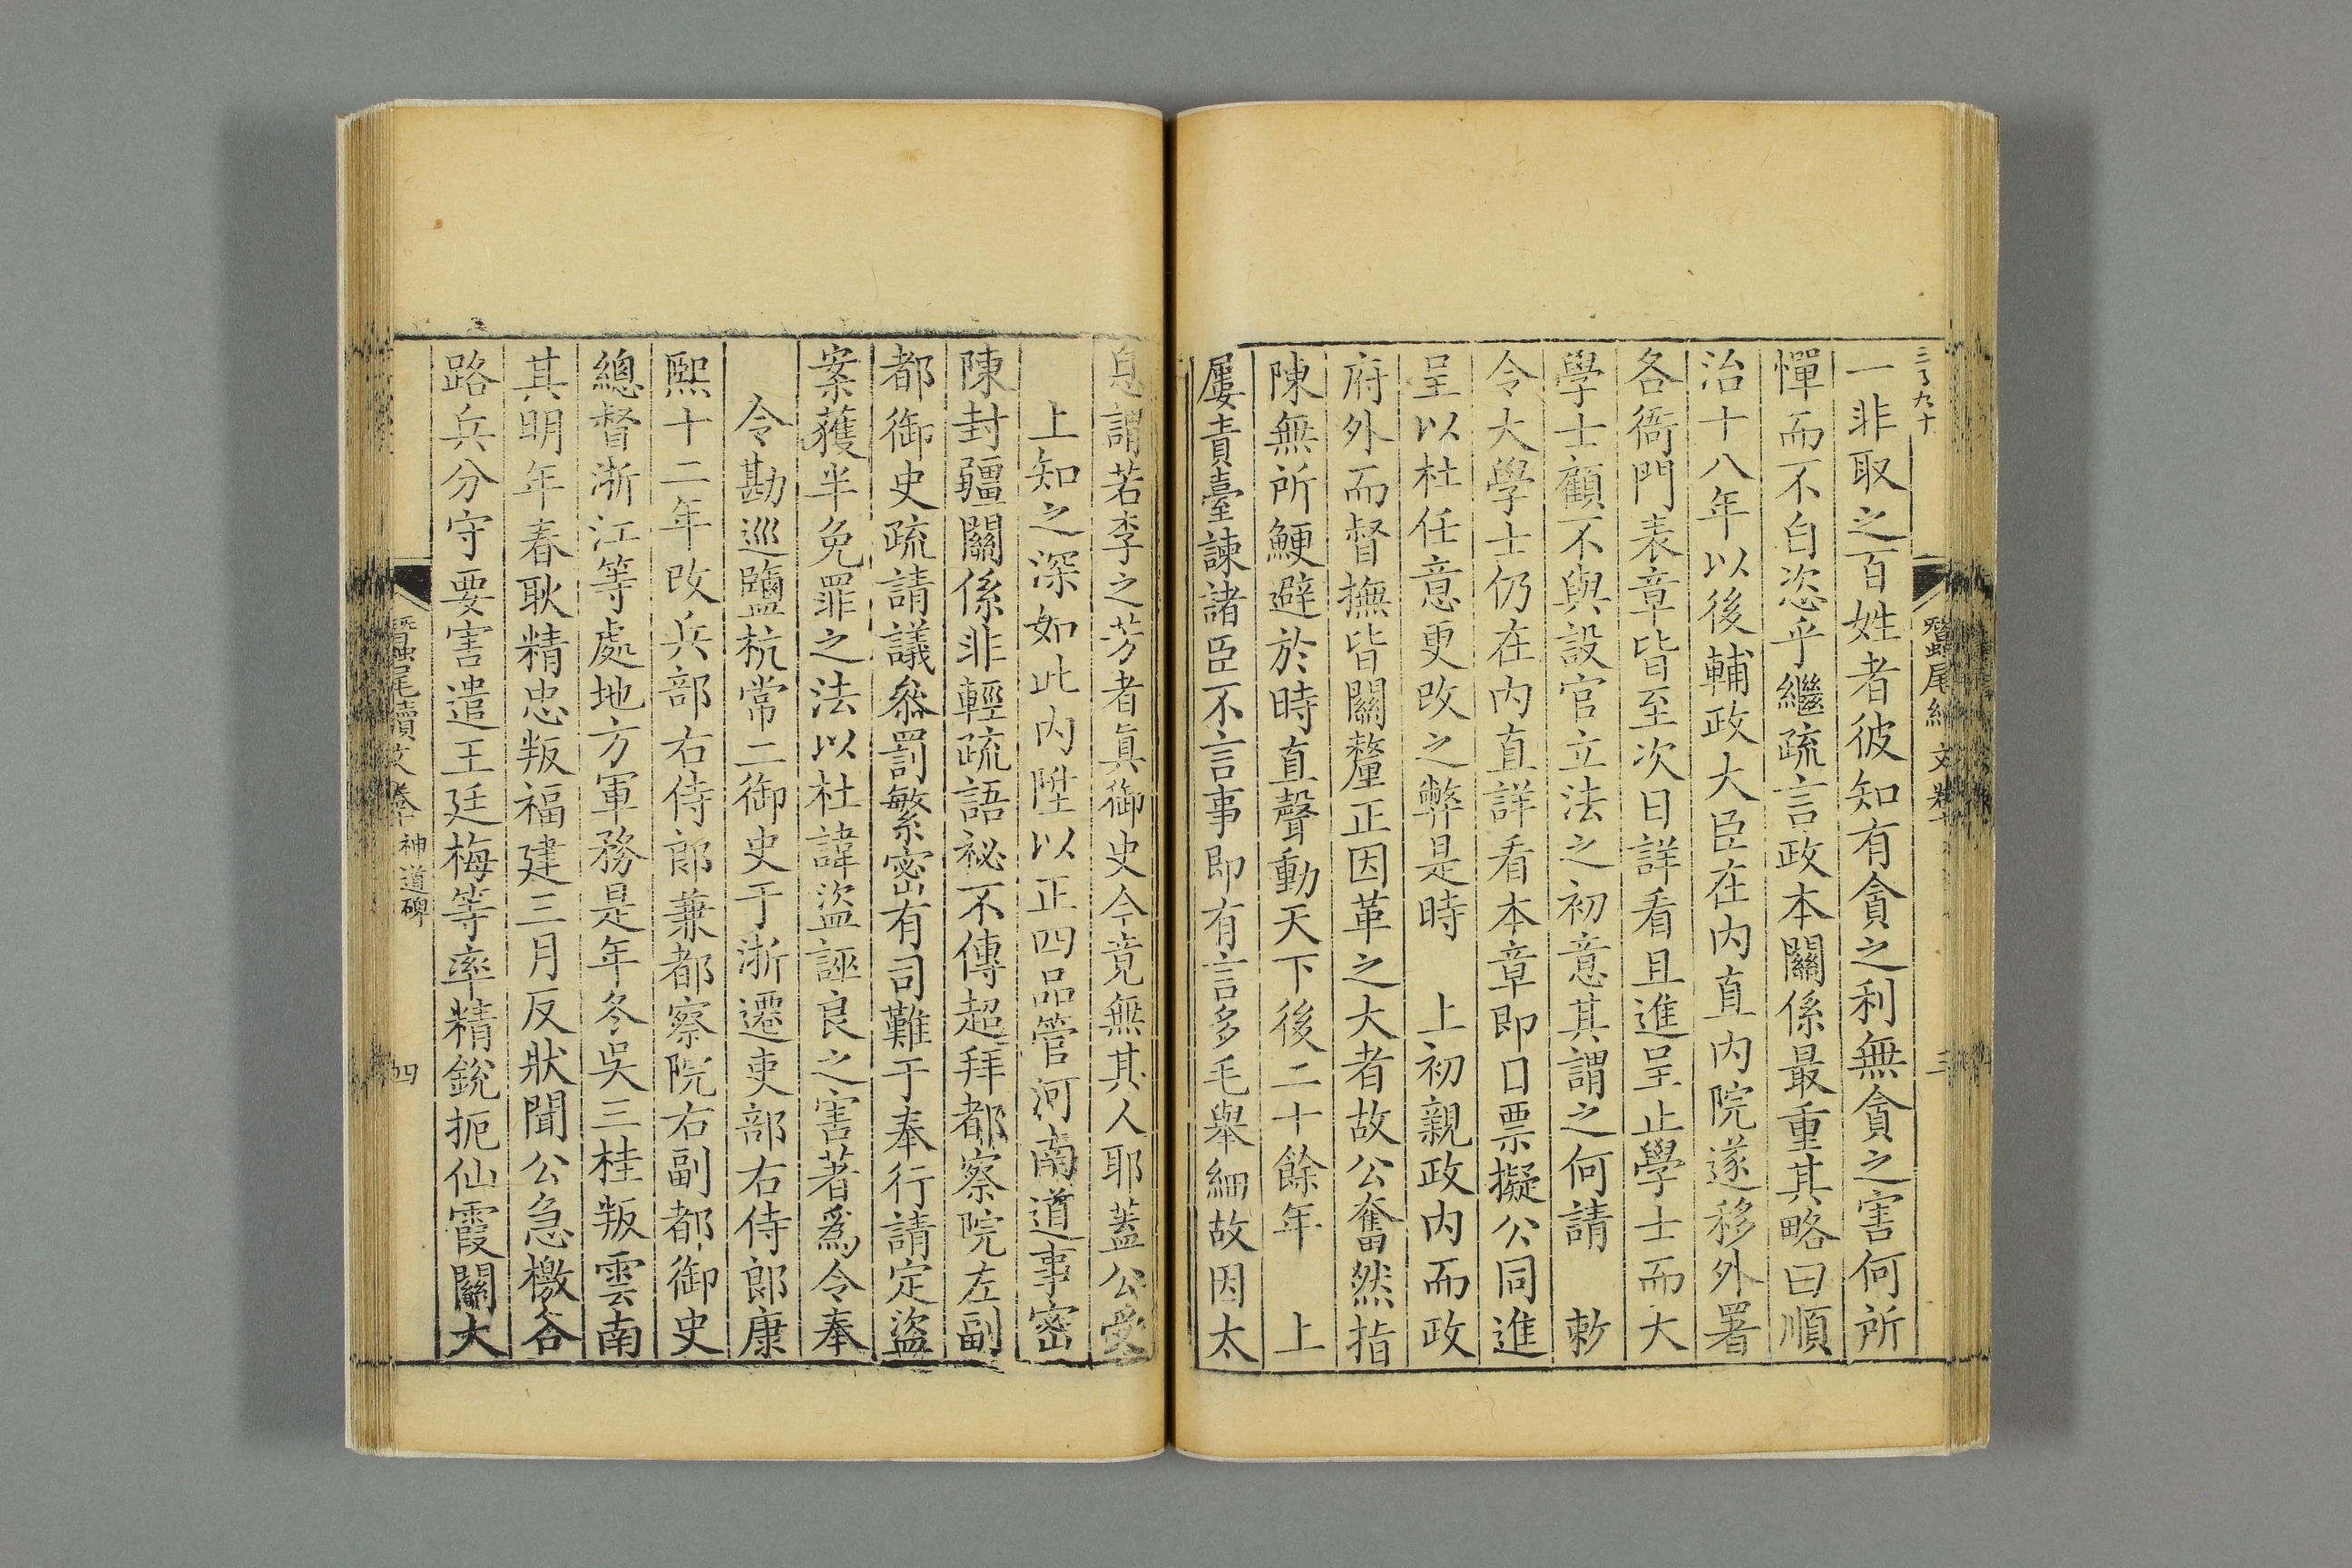 一非取之百姓者彼知有貪之利無貪之害何所
憚而不白恣乎繼疏言政本關係最重其略曰順
治十八年以後輔政大臣在内直内院遂移外署
各衙門表章皆至次日詳看且進呈止學士而大
學士顧不與設官立法之初意其謂之何請　敕
令大學士仍在内直詳看本章即口票擬公同進
呈以杜任意更改之弊是時　上初親政内而政
府外而督撫皆關釐正因革之大者故公奮然指
陳無所鯁避於時直聲動天下後二十餘年　上
屢責臺諫諸臣不言事即有言多毛舉細故因太
息謂若李之芳者真御史今竟無其人耶蓋公受
上知之深如此内陞以正四品管河南道事密
陳封疆關係非輕疏語祕不傳超拜都察院左副
都御史疏請議叅罰繁宻有司難于奉行請定盜
案獲半免罪之法以杜諱盜誣良之害著爲令奉
令勘巡鹽杭常二御史于浙遷吏部右侍郎康
熙十二年改兵部右侍郎兼都察院右副都御史
總督浙江等處地方軍務是年冬吳三桂叛雲南
其明年春耿精忠叛福建三月反狀聞公急檄各
路兵分守要害遣王廷梅等率精銳扼仙霞關大
蠶尾續文卷十 神道碑
四